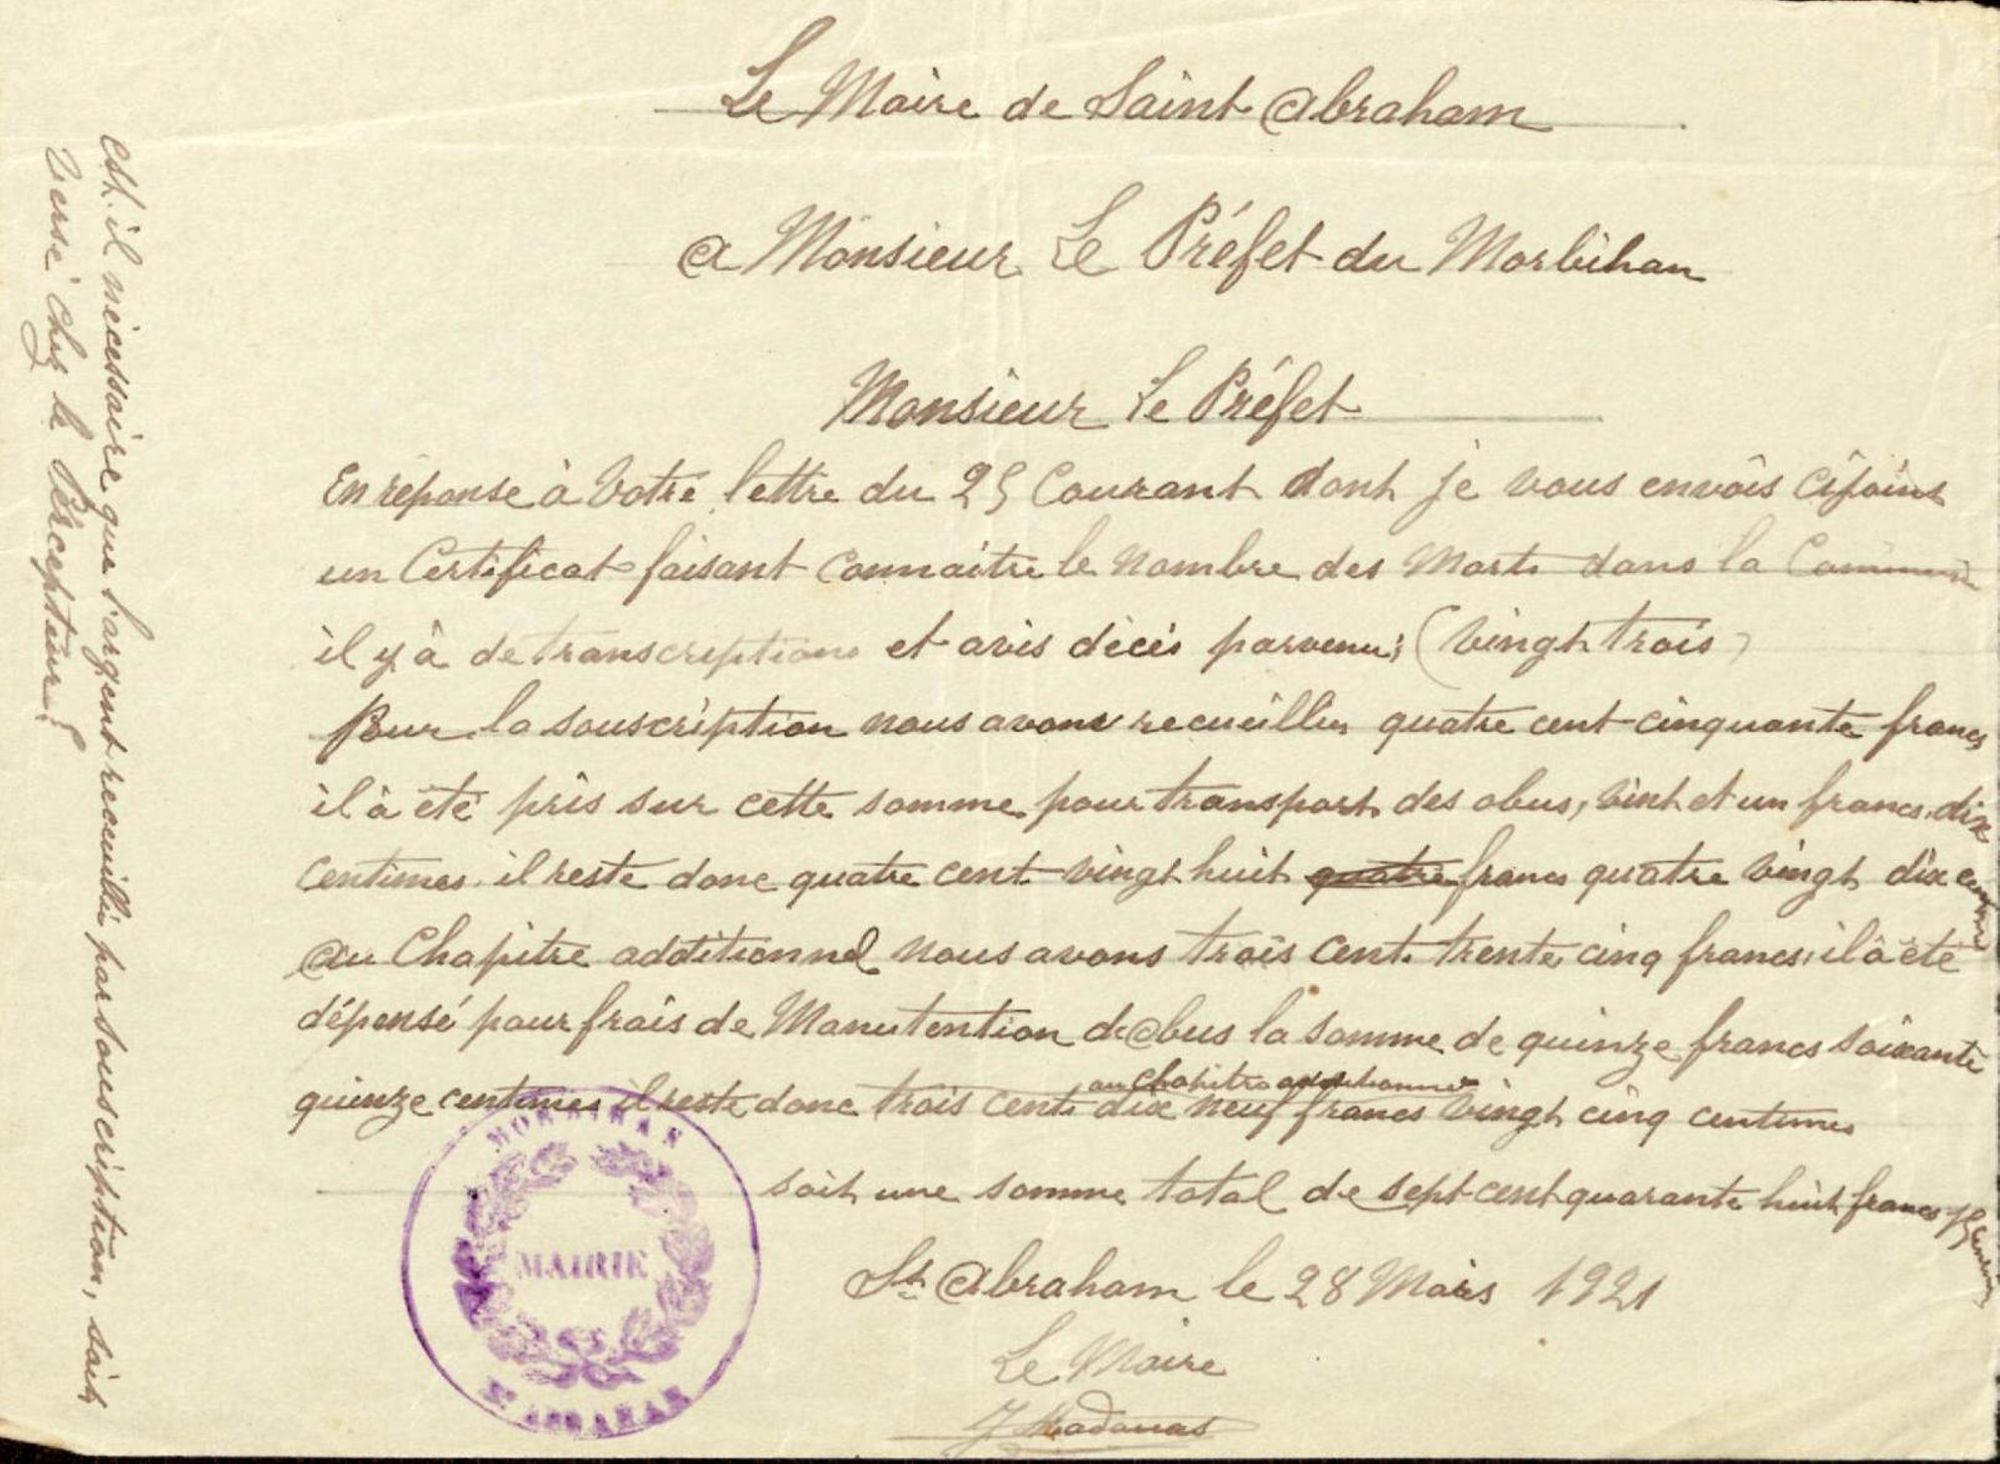 Le Maire de Saint Abraham
a Monsieur Le Préfet du Morbihan
Monsieur Le Préfet
En réponse à Votre lettre du 25 Courant dont je vous envois cijoint
un Certificat faisant Connaitre le Nombre des Morts dans la Commune
il y à de transcriptions et avis décès parvenus (vingt trois)
Pour la souscription nous avons recueillis quatre cent cinquante francs
il à été pris sur cette somme pour transport des obus, vint et un francs dix
centimes il reste donc quatre cent vingt huit quatre francs quatre vingt dix centimes
au Chapitre additionnel nous avons trois cent trente cinq francs il à été
dépensé pour frais de Manutention de obus la somme de quinze francs soixante
au Chapitre additionnel
quinze centimes il reste donc trois cent dix neuf francs vingt cinq centimes
soit une somme total de sept cent quarante huit francs 15 centimes
St Abraham le 28 Mars 1921
Le Maire
est-il nécessaire que l'argent recueillis par souscription, soit
versé chez le Percepteur?
MORBIHAN
MAIRIE
ST ABRAHAM